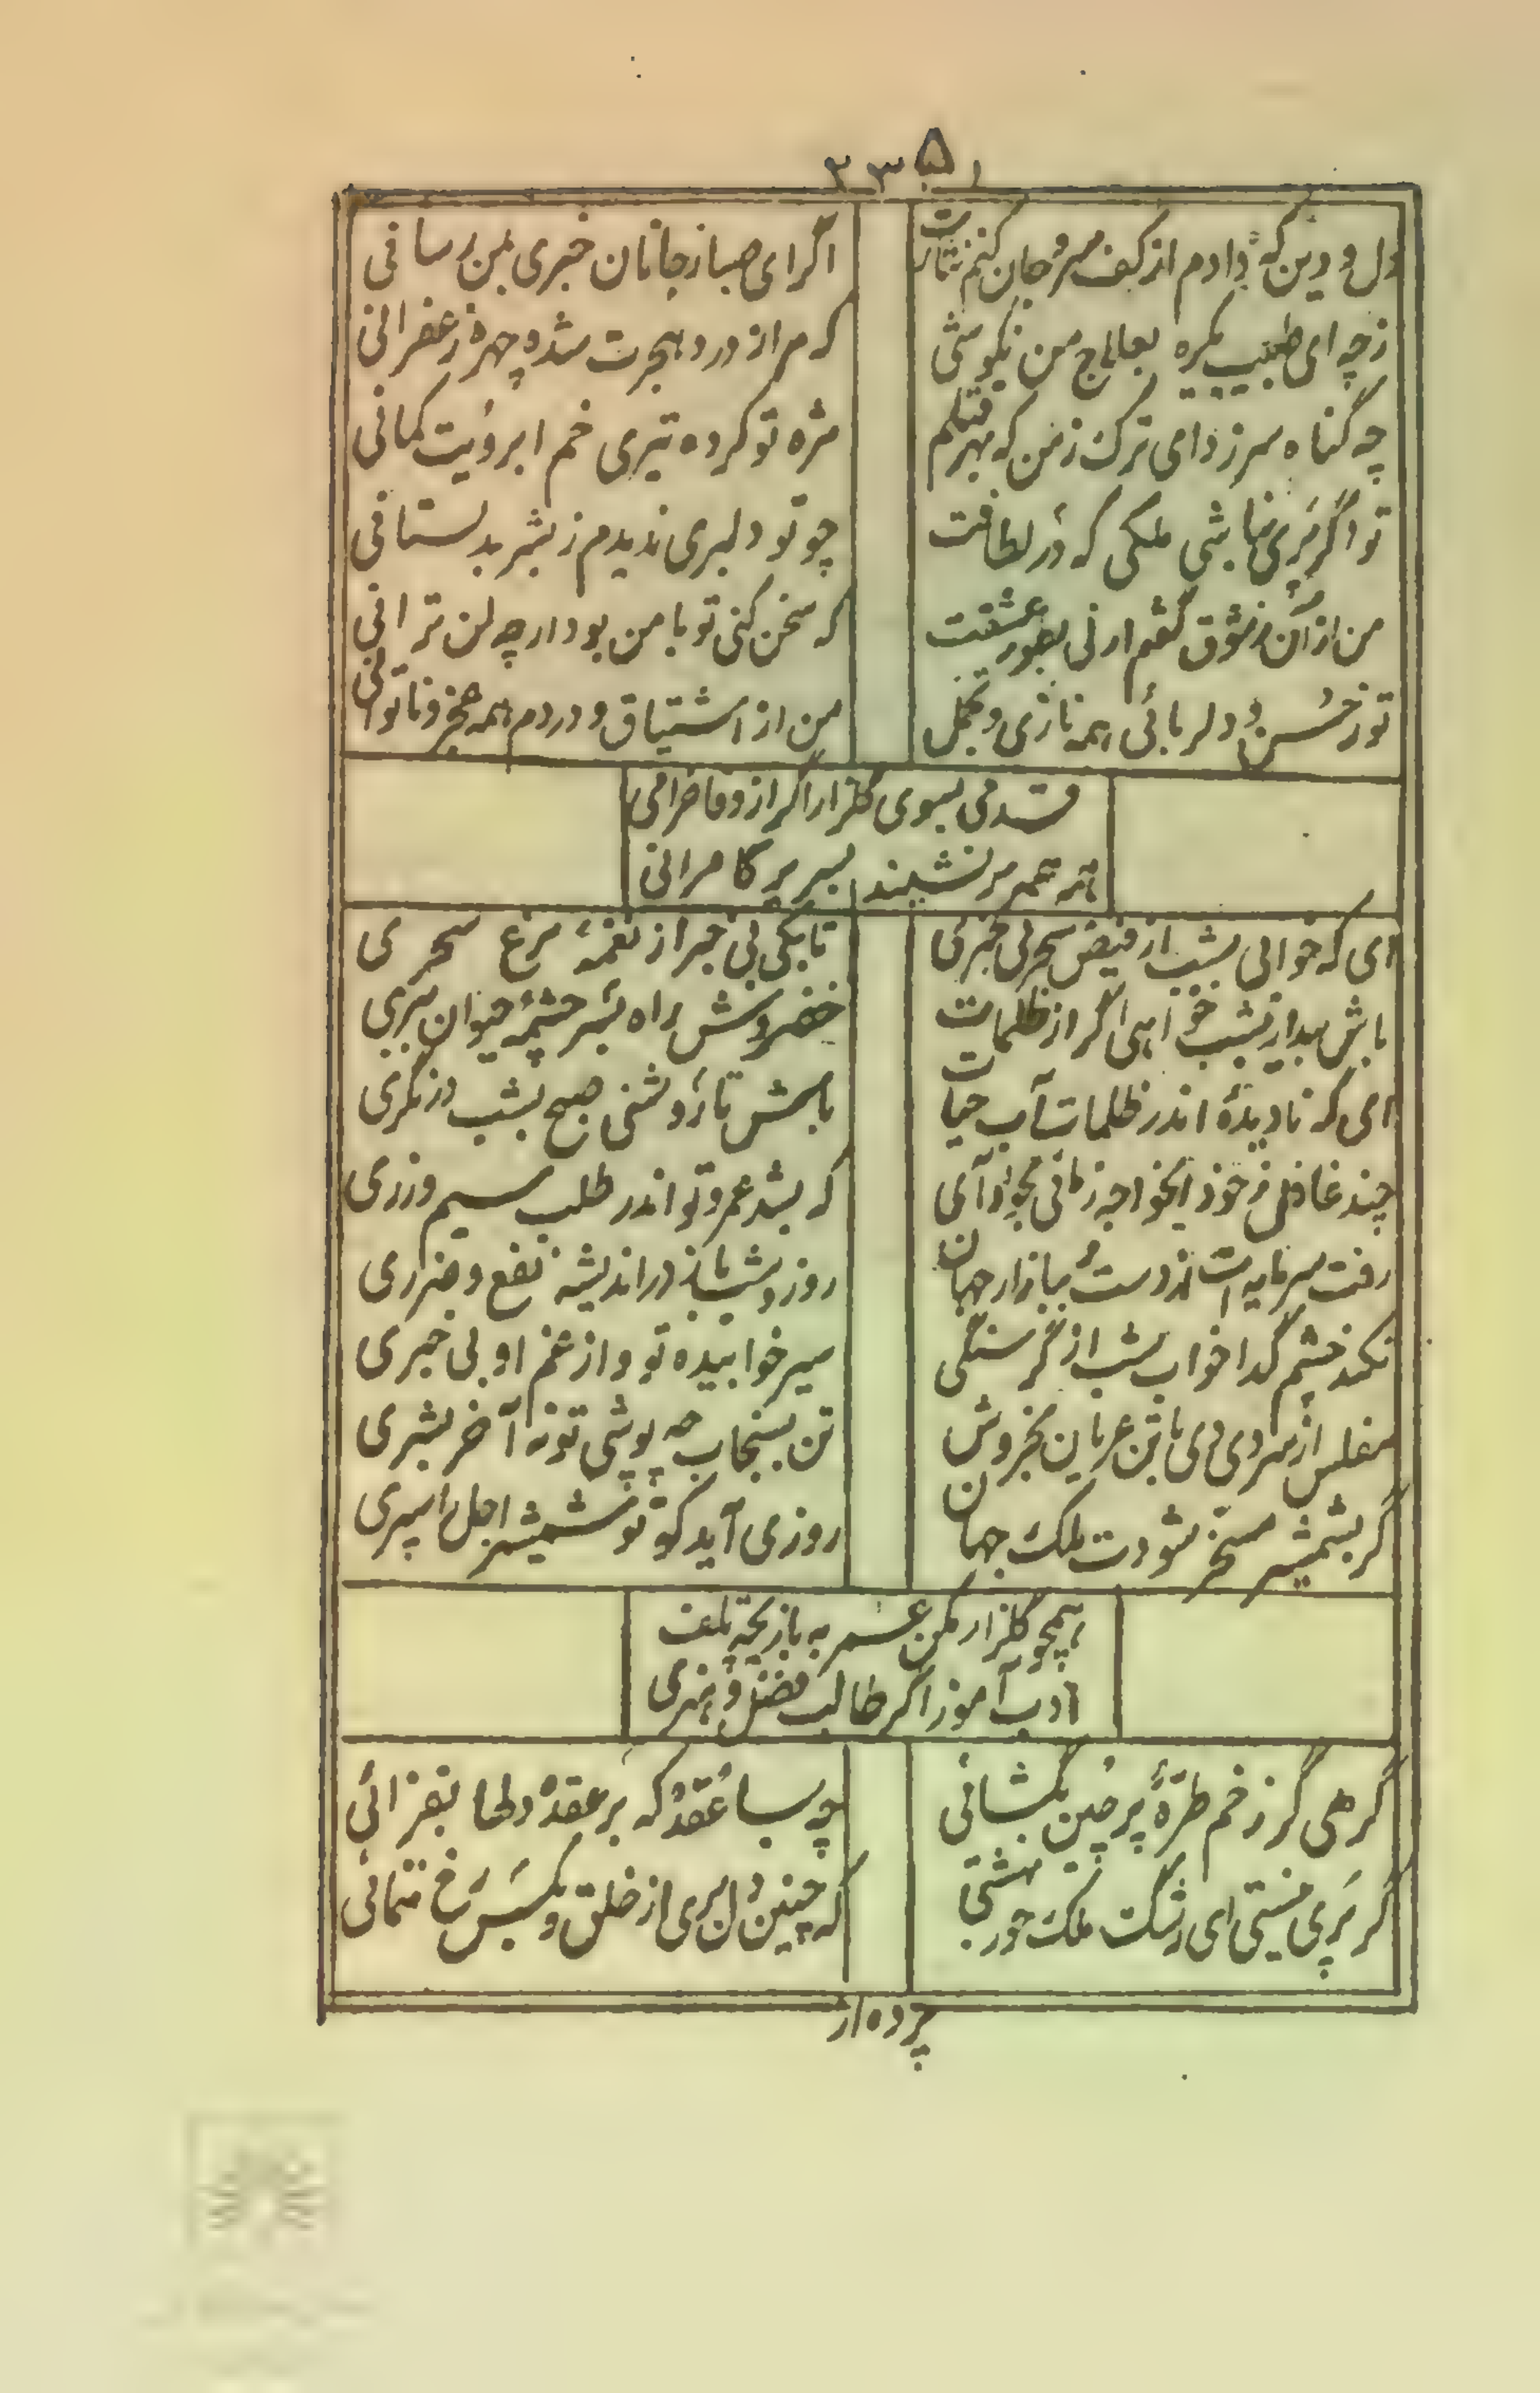 ۲۳۵
دل و دین که دادم از کف سر و جان کنم نثارت
اگر ای صبا ز جانان خبری بمن رسانی
ز چه ای طبیب یکره بعلاج من نکوشی
که مر از درد هجرت شده چهره زعفرانی
چه گناه سر زد ای ترک ز من که بهر قتلم
مژه تو کرده تیری خم ابرویت کمانی
تو اگر پری نباشی ملکی که در لطافت
چو تو دلبری ندیدم ز بشر بدلستانی
من از آن ز شوق گفتم ارنی بطور عشقت
که سخن کنی تو با من بود ار چه لن ترانی
تو ز حسن و دلربائی همه نازی و تجمل
من از اشتیاق و دردم همه عجز و ناتوانی
قدمی بسوی گلزار اگر از وفا خرامی
همه عمر بر نشیند بسریر کامرانی
ای که خوابی بشب از فیض سحر بی خبری
تا بکی بی خبر از نغمهٔ مرغ سحری
باش بیدار بشب خواهی اگر از ظلمات
خضر وش راه بسر چشمهٔ حیوان ببری
ای که نادیدهٔ اندر ظلمات آب حیات
باش تا روشنی صبح بشب در نگری
چند غافل ز خود ایخواجه زمانی بخود آی
که بشد عمر و تو اندر طلب سیم و زری
رفت سرمایه ات از دست ببازار جهان
روز و شب باز در اندیشه نفع و ضرری
نکند چشم گدا خواب شب از گرسنگی
سیر خوابیده تو و از غم او بی خبری
مفلس از سردی دی با تن عریان بخروش
تن بسنجاب چه پوشی تو نه آخر بشری
گر بشمشیر مسخر شودت ملک جهان
روزی آید که تو شمشیر اجل را سپری
همچو گلزار مکن عمر به بازیچه تلف
ادب آموز اگر طالب فضل و هنری
گرهی گر ز خم طرهٔ پر چین بگشائی
چه بسا عقده که بر عقدهٔ دلها بفزائی
گر پری نیستی ای رشک ملک حور بهشتی
که چنین دل ببری از خلق و بکس رخ ننمائی
پرده از